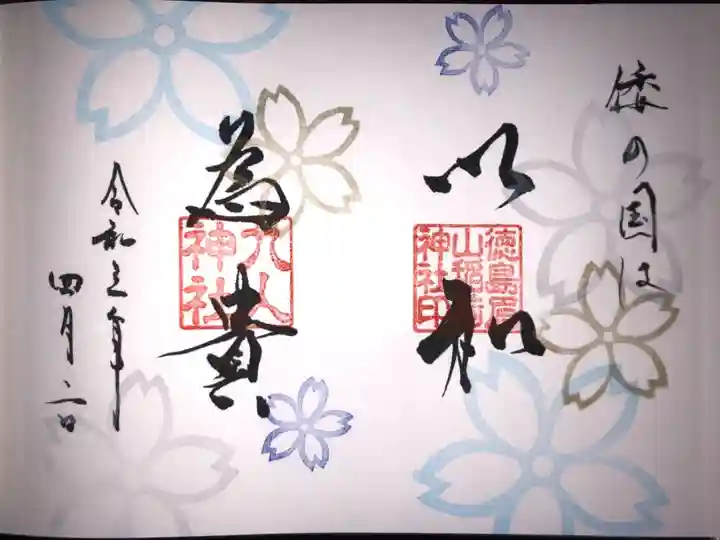 倭の国は
以和
為貴
令和五年
四月二日
徳島眉
山稲荷
神社印
神社